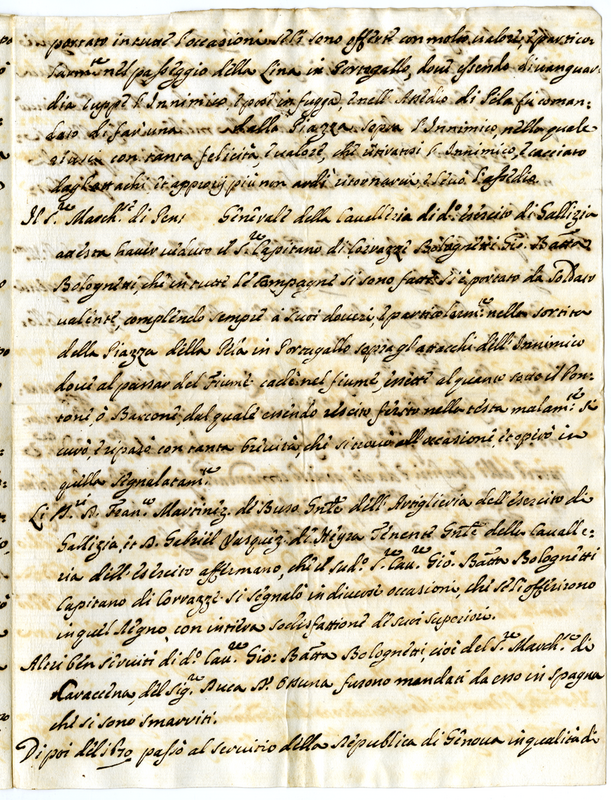 portato in tutte l'occasioni se li sono offerte con molto valore, e partico-
larmte nel passeggio della Lina in Portogallo, dove essendo di vanguar-
dia ruppe l'Innimico, e pose in fuga, e nell'Assedio di Pela fu coman-
dato di far una dalla Piazza sopra l'Innimico, nella quale
con tanta felicità, e valore, che ritiratosi l'Innimico, e cacciato
dagli attachi, et approcij più non ardì ritornarvi, e levò l'assedio.
Il Sre Marchse di Pens Generale della Cavalleria di do esercito di Gallizia
attesta haver veduto il Sre Capitano di Corrazze Bolognetti Gio. Batta
Bolognetti, che in tutte le campagne si sono fatte si è portato da Soldato
valente, complendo sempre a' suoi doveri, e particolarmte nella sortita
della Piazza della Pela in Portogallo sopra gli attacchi dell'Innimico
dove al passar del Fiume cadè nel fiume, e stette alquanto sotto il Pon-
tone, ò Barcone, dal quale essendo uscito ferito nella testa malamte si
curò e ripose con tanta brevità, che si trovò all'occasione, et operò in
quella segnalatamte
Li Sri D. Franco Martinez de Buso Gnte dell'Artiglieria dell'esercito di
Gallizia, et D. Gabriel Vasquez de Neyra Tenente Gnte della Cavalle-
ria dell'Esercito affermano, che il sudo Sre Cavre Gio. Batta Bolognetti
Capitano di Corrazze si segnalò in diverse occasioni, che se li offerirono
in quel Regno, con intiera sodisfattione de' suoi superiori.
Altri ben serviti di do Cavre Gio: Batta Bolognetti, cioè del Sre Marchse di
Caraccena, del Sigre Duca D'Ossuna, furono mandati da esso in Spagna
che si sono smarriti.
Di poi del 1670 passò al servitio della Republica di Genova in qualità di